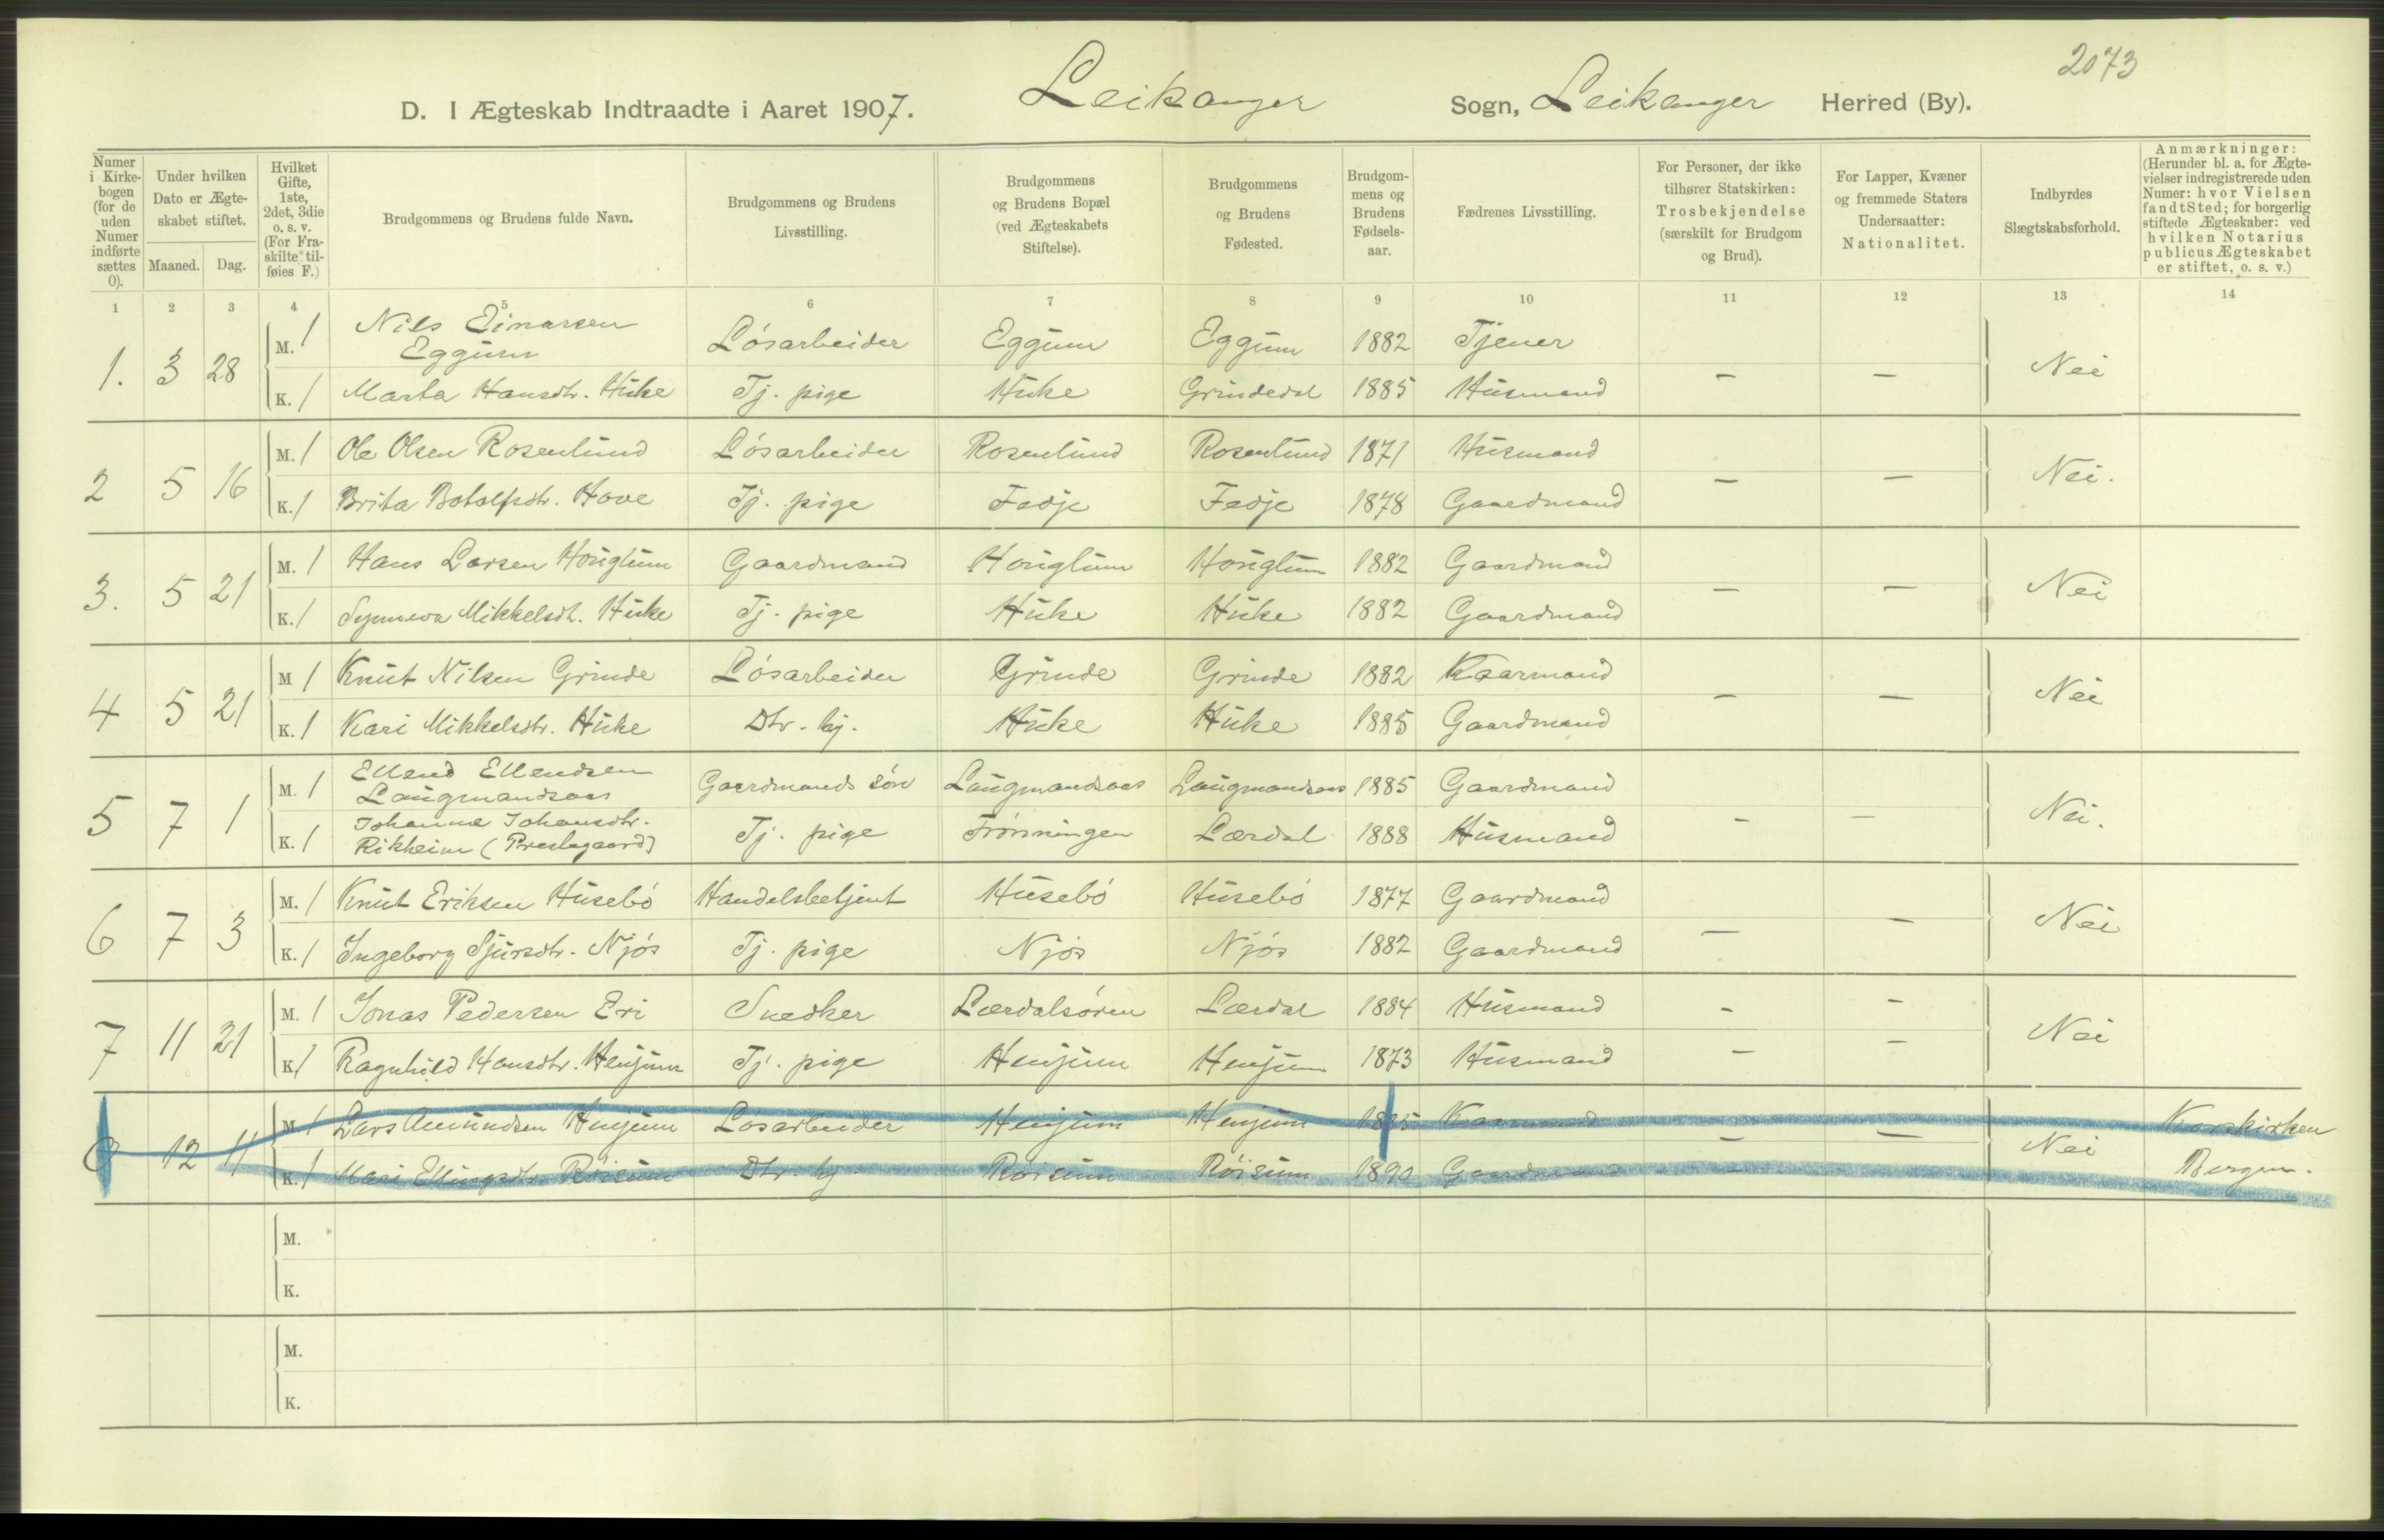 2073
D. I Ægteskab Indtraadte i Aaret 1907. Leikanger Sogn, Leikanger Herred (By).
Numer i Kirkebogen (for de uden Numer indførte sættes 0).
Under hvilken Dato er Ægteskabet stiftet.
Maaned. Dag.
Hvilket Gifte, 1ste, 2det, 3die o. s. v. (For Fraskilte tilføies F.)
Brudgommens og Brudens fulde Navn.
Brudgommens og Brudens Livsstilling.
Brudgommens og Brudens Bopæl (ved Ægteskabets Stiftelse).
Brudgommens og Brudens Fødested.
Brudgommens og Brudens Fødselsaar.
Fædrenes Livsstilling.
For Personer, der ikke tilhører Statskirken: Trosbekjendelse (særskilt for Brudgom og Brud).
For Lapper, Kvæner og fremmede Staters Undersaatter: Nationalitet.
Indbyrdes Slægtskabsforhold.
Anmærkninger: (Herunder bl. a. for Ægtevielser indregistrerede uden Numer: hvor Vielsen fandt Sted; for borgerlig stiftede Ægteskaber: ved hvilken Notarius publicus Ægteskabet er stiftet, o. s. v.)
1 2 3 4 5 6 7 8 9 10 11 12 13 14
1. 3 28 M. 1 Nils Einarsen Eggum Løsarbeider Eggum Eggum 1882 Tjener
K. 1 Marta Hansdtr. Huke Tj. pige Huke Grindedal 1885 Husmand – – Nei
2 5 16 M. 1 Ole Olsen Rosenlund Løsarbeider Rosenlund Rosenlund 1871 Husmand
K. 1 Brita Botolfsdtr. Hove Tj. pige Fedje Fedje 1878 Gaardmand – – Nei.
3. 5 21 M. 1 Hans Larsen Houglum Gaardmand Houglum Houglum 1882 Gaardmand
K. 1 Synneva Mikkelsdt. Huke Tj. pige Huke Huke 1882 Gaardmand – – Nei
4 5 21 M 1 Knut Nilsen Grinde Løsarbeider Grinde Grinde 1882 Kaarmand
K. 1 Kari Mikkelsdtr. Huke Dtr. hj. Huke Huke 1885 Gaardmand – – Nei
5 7 1 M. 1 Ellend Ellendsen Laugmandsaas Gaardmands søn Laugmandsaas Laugmandsaas 1885 Gaardmand
K. 1 Johanne Johansdtr. Rikheim (Prestegaard) Tj. pige Frønningen Lærdal 1888 Husmand – – Nei.
6 7 3 M. 1 Knut Eriksen Husebø Handelsbetjent Husebø Husebø 1877 Gaardmand
K. 1 Ingeborg Sjursdtr. Njøs Tj. pige Njøs Njøs 1882 Gaardmand – – Nei
7 11 21 M. 1 Jonas Pedersen Eri Snedker Lærdalsøren Lærdal 1884 Husmand – –
K 1 Ragnhild Hansdtr. Henjum Tj. pige Henjum Henjum 1873 Husmand – – Nei
0 12 11 M 1 Lars Amundsen Henjum Løsarbeider Henjum Henjum 1885 Kaarmand Korskirken
K. 1 Mari Ellingsdtr. Røisum Dtr. hj. Røisum Røisum 1890 Gaardmand – – Nei Bergen.
M.
K.
M.
K.